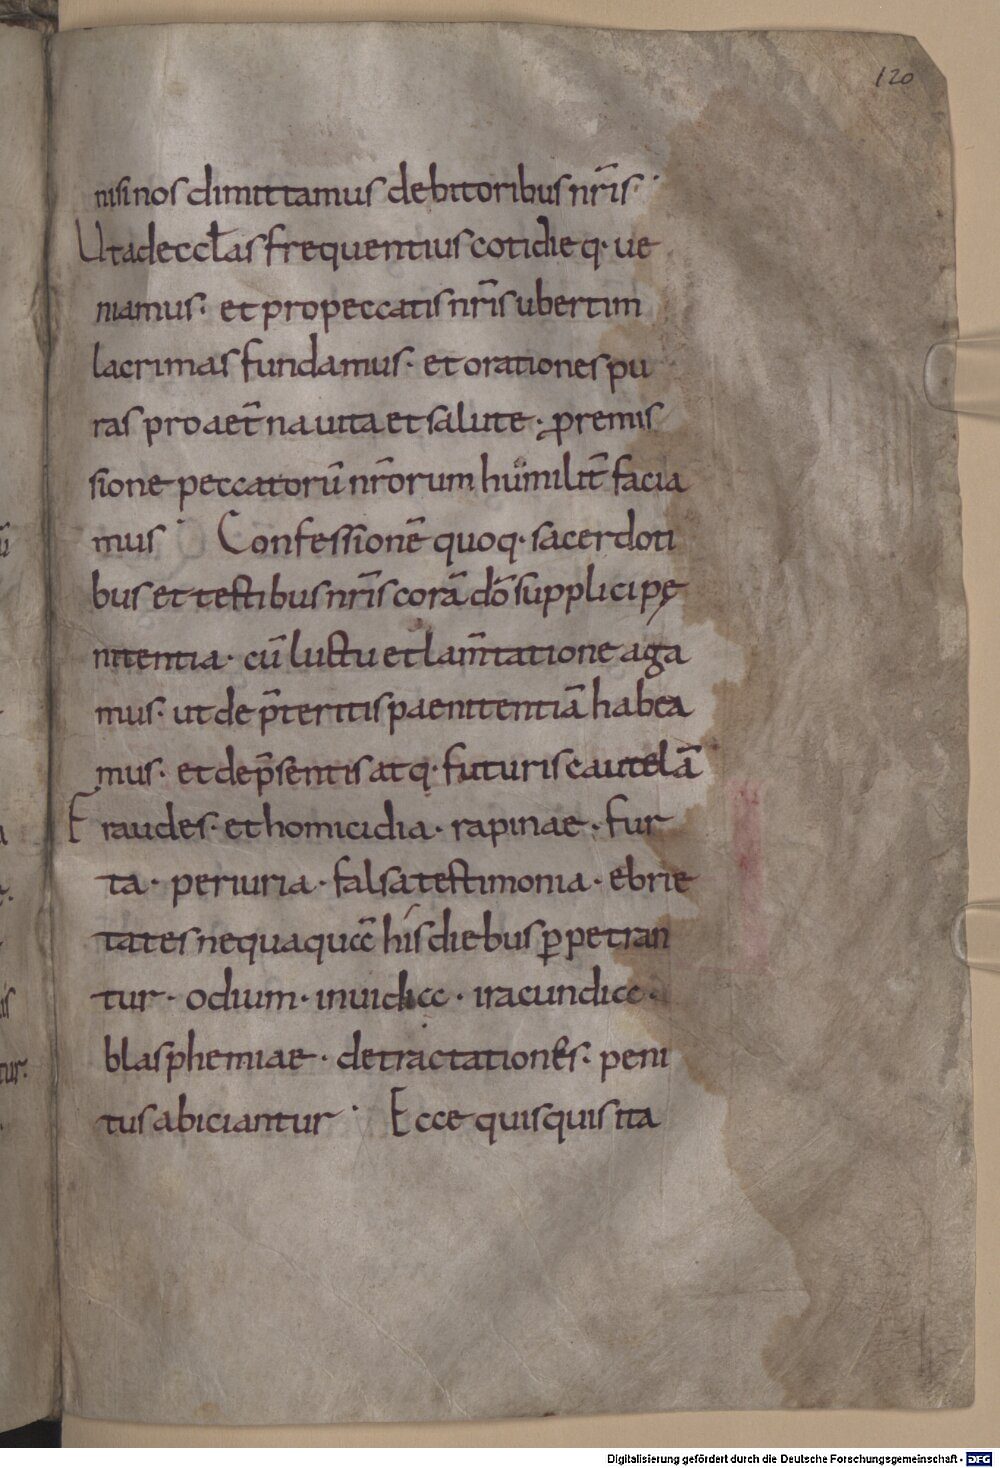 120
nisi nos dimittamus debitoribus nr̄is·
Ut ad eccłas frequentius cotidieq· ue
niamus· et pro peccatis nr̄is ubertim
lacrimas fundamus· et orationes pu
ras pro aet̄na uita et salute· pro remis
sione peccatorū nr̄orum humilit̄ facia
mus· Confessionē quoq· sacerdoti
bus et testibus nr̄is corā dō supplici pę
nitentia· cū luctu et lam̄tatione aga
mus· ut de p̄teritis paenitentiā habea
mus· et de p̄sentis atq· futuris cautelā
Fraudes· et homicidia· rapinae· fur
ta· periuria· falsa testimonia· ebrie
tates nequaquā his diebus ꝑpetran
tur· odium· inuidia· iracundia·
blasphemiae· detractationes· peni
tus abiciantur· Ecce quisquis ita
Digitalisierung gefördert durch die Deutsche Forschungsgemeinschaft - DFG